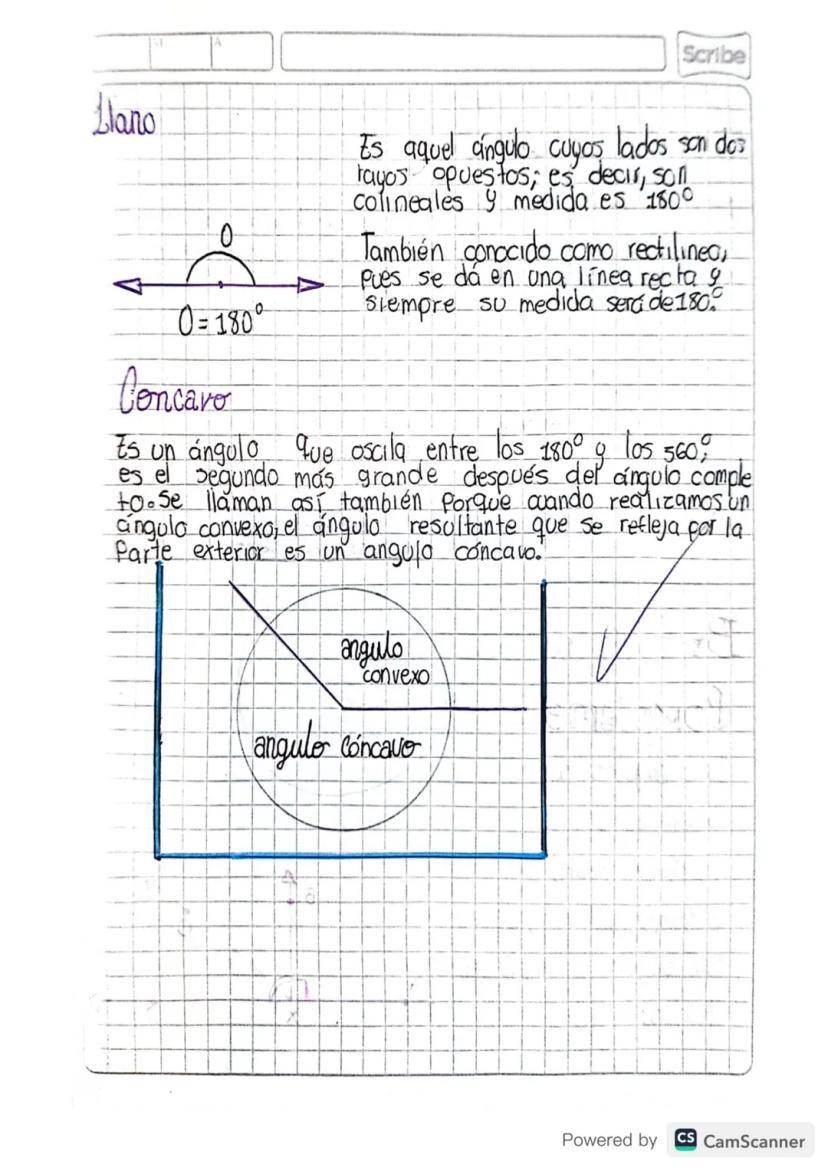 Scribe
Llano
Es aquel ángulo cuyos lados son dos
rayos opuestos; es decir, son
colineales y medida es 180°
0
También conocido como rectilineo,
pues se dá en una línea recta y
siempre su medida será de 180°.
0 = 180°
Concavo
Es un ángulo que oscila entre los 180° y los 560°;
es el segundo más grande después del ángulo comple
to. Se llaman así también porque cuando realizamos un
ángulo convexo, el ángulo resultante que se refleja por la
Parte exterior es un angulo cóncavo.
angulo
convexo
angulo cóncavo
Powered by CS CamScanner